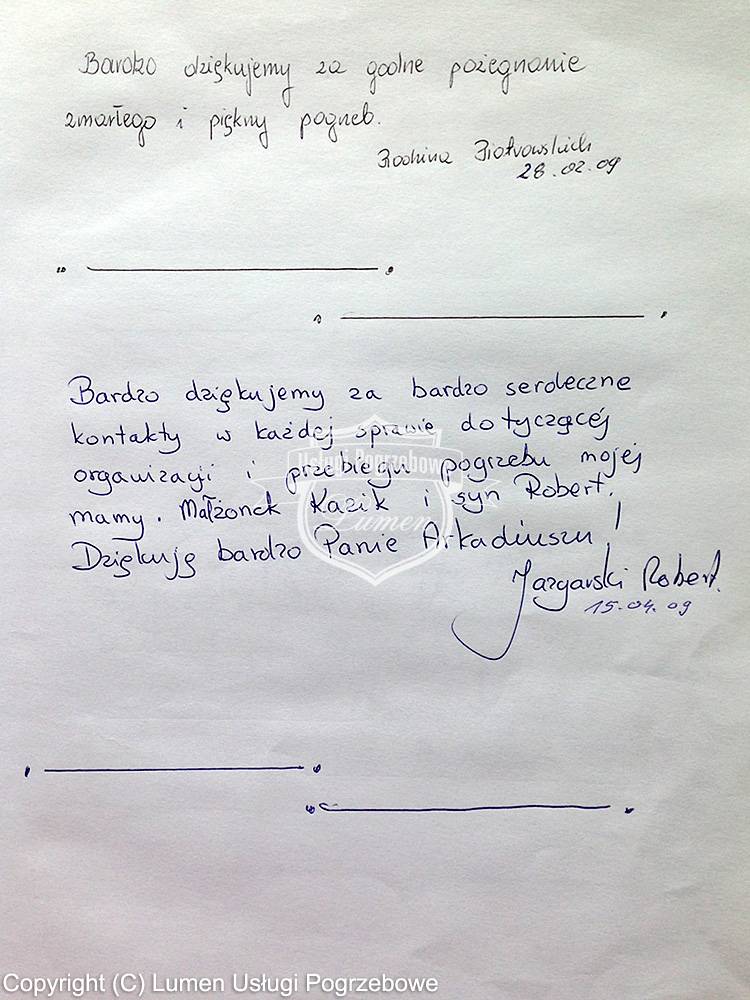 Bardzo dziękujemy za godne pożegnanie
zmarłego i piękny pogrzeb.
Rodzina Piotrowskich
28.02.09
Bardzo dziękujemy za bardzo serdeczne
kontakty w każdej sprawie dotyczącej
organizacji i przebiegu pogrzebu mojej
mamy. Małżonek Kazik i syn Robert.
Dziękuję bardzo Panie Arkadiuszu!
Jazgarski Robert.
15.04.09
Usługi Pogrzebowe
Lumen
Copyright (C) Lumen Usługi Pogrzebowe